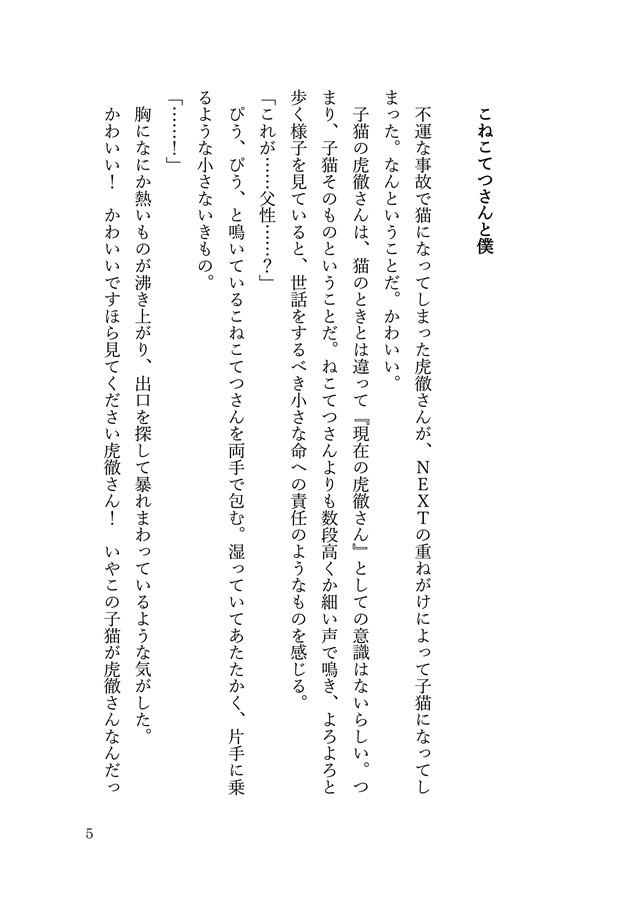 こねこてつさんと僕
不運な事故で猫になってしまった虎徹さんが、NEXTの重ねがけによって子猫になってし
まった。なんということだ。かわいい。
子猫の虎徹さんは、猫のときとは違って『現在の虎徹さん』としての意識はないらしい。つ
まり、子猫そのものということだ。ねこてつさんよりも数段高くか細い声で鳴き、よろよろと
歩く様子を見ていると、世話をするべき小さな命への責任のようなものを感じる。
「これが……父性……？」
ぴう、ぴう、と鳴いているこねこてつさんを両手で包む。湿っていてあたたかく、片手に乗
るような小さないきもの。
「……！」
胸になにか熱いものが沸き上がり、出口を探して暴れまわっているような気がした。
かわいい！　かわいいですほら見てください虎徹さん！　いやこの子猫が虎徹さんなんだっ
5